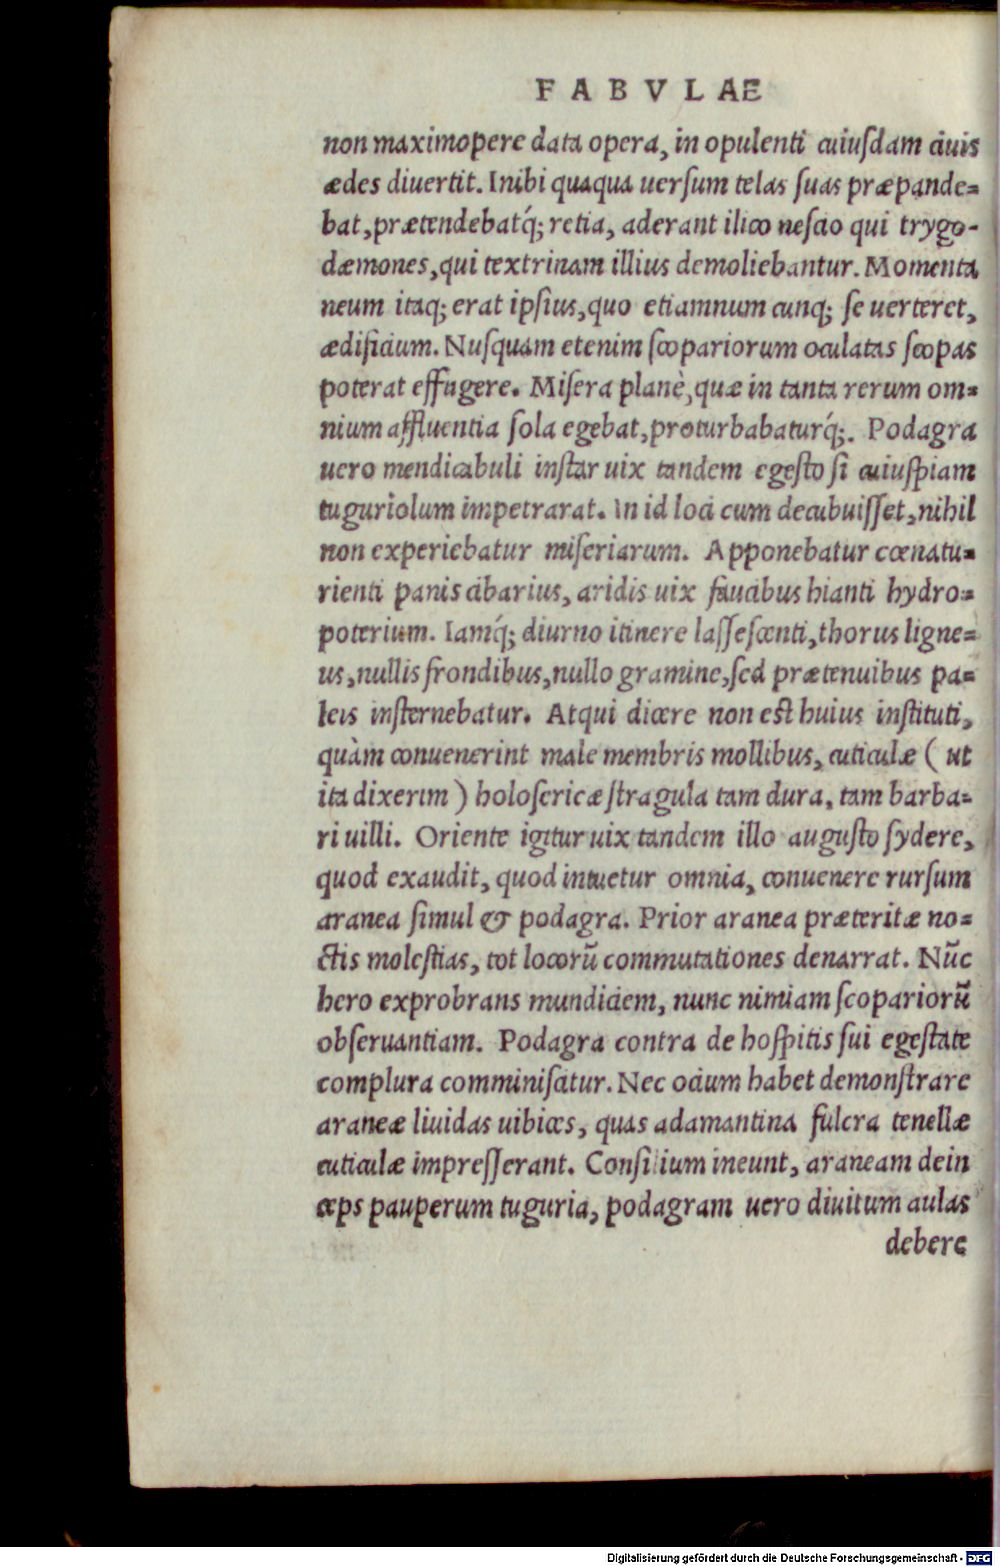 FABVLAE
non maximopere data opera, in opulenti cuiusdam ciuis
ædes diuertit. Inibi quaqua uersum telas suas præpande=
bat, prætendebatq́; retia, aderant ilico nescio qui trygo-
dæmones, qui textrinam illius demoliebantur. Momenta
neum itaq; erat ipsius, quo etiamnum cunq; se uerteret,
ædificium. Nusquam etenim scopariorum oculatas scopas
poterat effugere. Misera planè, quæ in tanta rerum om=
nium affluentia sola egebat, proturbabaturq́;. Podagra
uero mendicabuli instar uix tandem egestosi cuiuspiam
tuguriolum impetrarat. In id loci cum decubuisset, nihil
non experiebatur miseriarum. Apponebatur cœnatu=
rienti panis cibarius, aridis uix faucibus hianti hydro=
poterium. Iamq́; diurno itinere lassescenti, thorus ligne=
us, nullis frondibus, nullo gramine, sed prætenuibus pa=
leis insternebatur. Atqui dicere non est huius instituti,
quàm conuenerint male membris mollibus, cuticulæ ( ut
ita dixerim ) holosericæ stragula tam dura, tam barba=
ri uilli. Oriente igitur uix tandem illo augusto sydere,
quod exaudit, quod intuetur omnia, conuenere rursum
aranea simul & podagra. Prior aranea præteritæ no=
ctis molestias, tot locorũ commutationes denarrat. Nũc
hero exprobrans mundiciem, nunc nimiam scopariorũ
obseruantiam. Podagra contra de hospitis sui egestate
complura comminiscitur. Nec ocium habet demonstrare
araneæ liuidas uibices, quas adamantina fulcra tenellæ
cuticulæ impresserant. Consilium ineunt, araneam dein
ceps pauperum tuguria, podagram uero diuitum aulas
debere
Digitalisierung gefördert durch die Deutsche Forschungsgemeinschaft - DFG